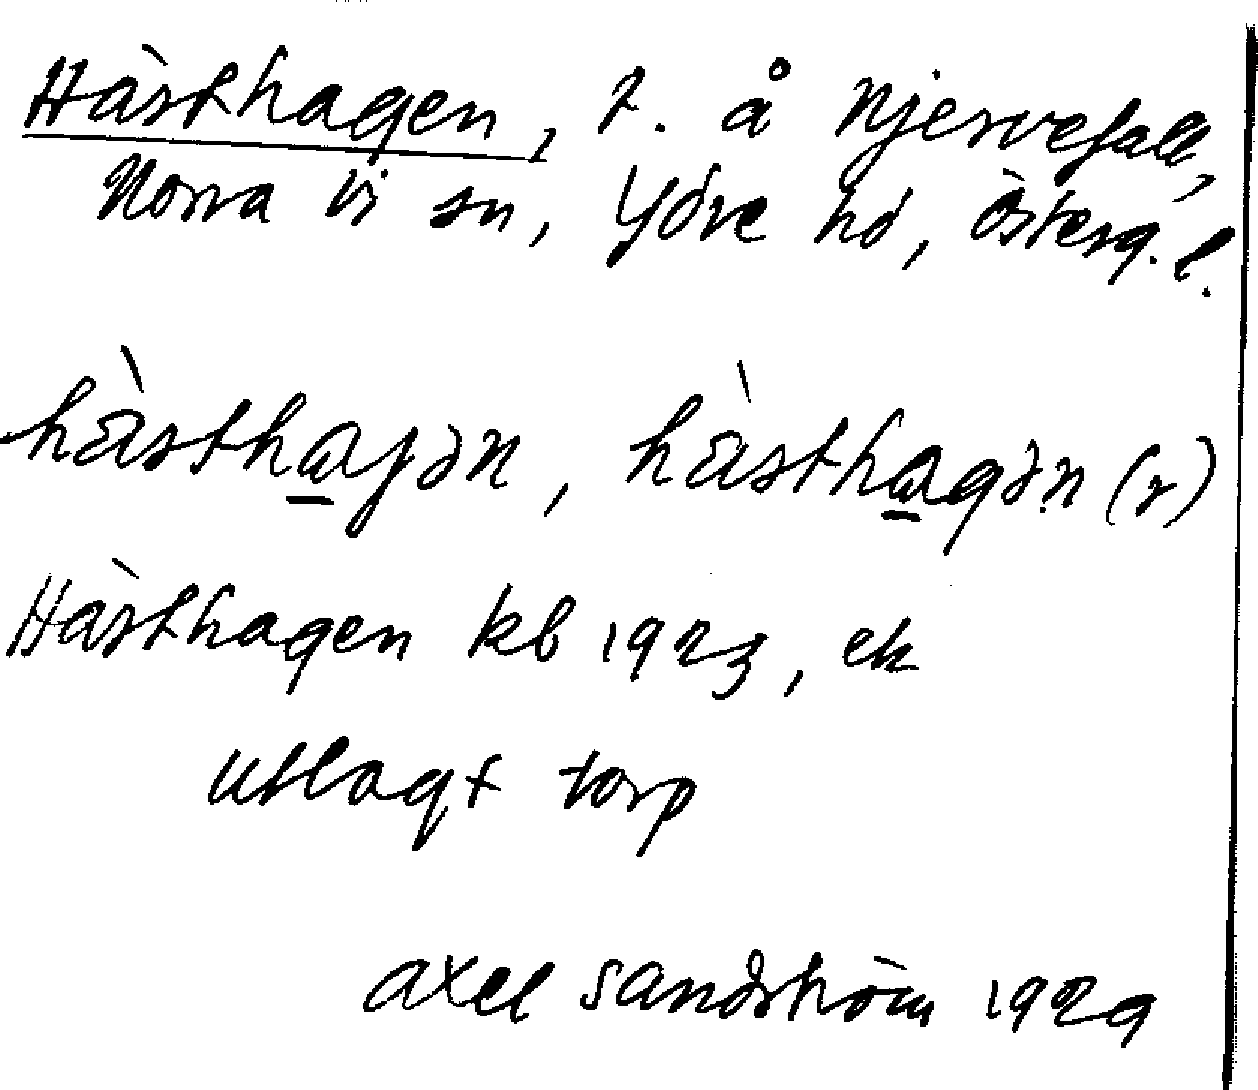 Hästhagen, t. å Njervefall,
Norra Vi sn, Ydre hd, Österg. l.
hästhajən, hästhagən (r)
Hästhagen kb 1923, ek
utlagt torp
Axel Sandström 1929